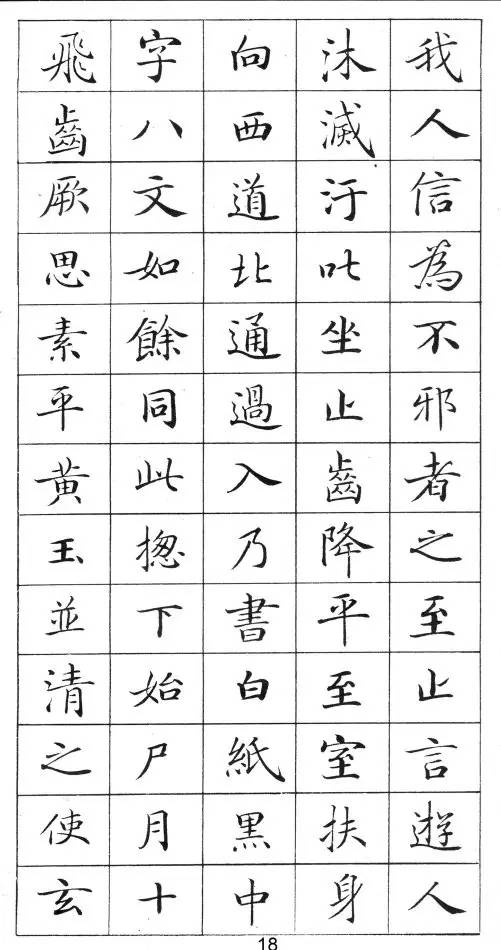 我人信為不邪者之至止言遊人
沐滅汙叱坐止齒降平至室扶身
向西道北通過入乃書白紙黒中
字八文如餘同此揔下始尸月十
飛齒厥思素平黄玉並清之使玄
18